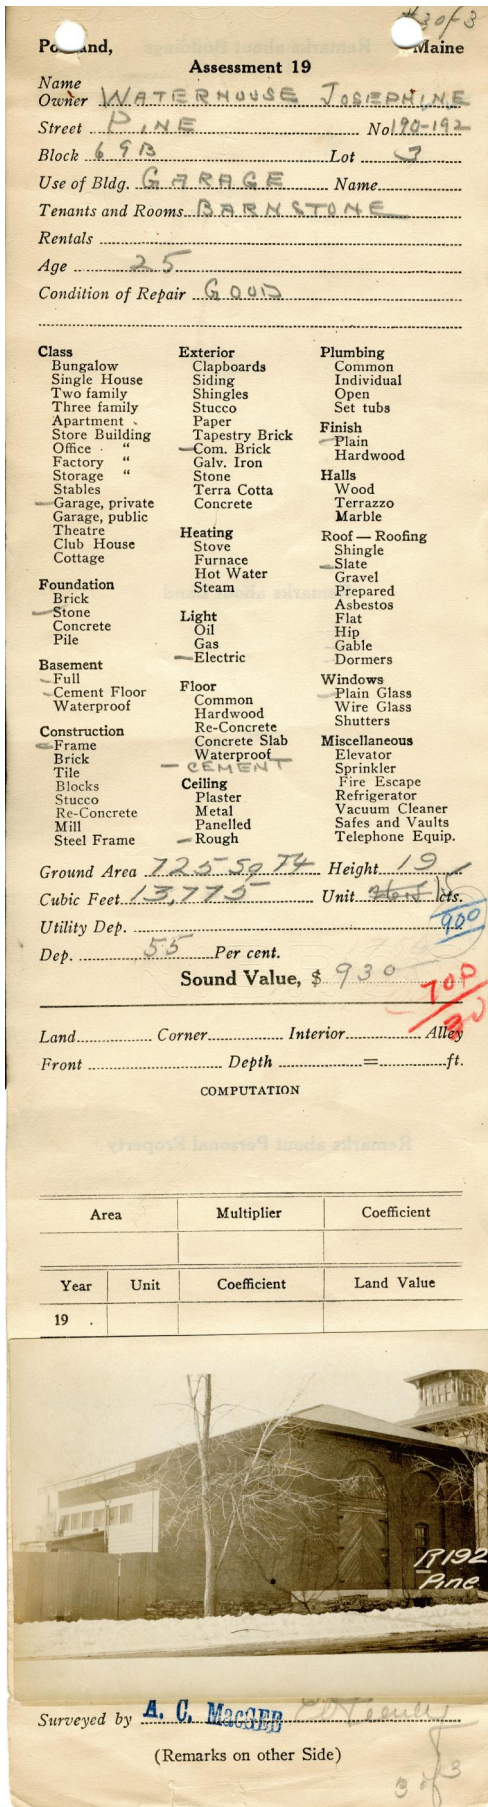 #3 of 3
Portland, Maine
Assessment 19
Name
Owner WATERHOUSE JOSEPHINE
Street PINE No 190-192
Block 69B Lot 3
Use of Bldg. GARAGE Name
Tenants and Rooms BARNSTONE
Rentals
Age 25
Condition of Repair GOOD
Class
Bungalow
Single House
Two family
Three family
Apartment
Store Building
Office "
Factory "
Storage "
Stables
Garage, private
Garage, public
Theatre
Club House
Cottage
Foundation
Brick
Stone
Concrete
Pile
Basement
Full
Cement Floor
Waterproof
Construction
Frame
Brick
Tile
Blocks
Stucco
Re-Concrete
Mill
Steel Frame
Exterior
Clapboards
Siding
Shingles
Stucco
Paper
Tapestry Brick
Com. Brick
Galv. Iron
Stone
Terra Cotta
Concrete
Heating
Stove
Furnace
Hot Water
Steam
Light
Oil
Gas
Electric
Floor
Common
Hardwood
Re-Concrete
Concrete Slab
Waterproof
CEMENT
Ceiling
Plaster
Metal
Panelled
Rough
Plumbing
Common
Individual
Open
Set tubs
Finish
Plain
Hardwood
Halls
Wood
Terrazzo
Marble
Roof — Roofing
Shingle
Slate
Gravel
Prepared
Asbestos
Flat
Hip
Gable
Dormers
Windows
Plain Glass
Wire Glass
Shutters
Miscellaneous
Elevator
Sprinkler
Fire Escape
Refrigerator
Vacuum Cleaner
Safes and Vaults
Telephone Equip.
Ground Area 725 Sq Ft Height 19
Cubic Feet 13,775 Unit cts.
Utility Dep. 900
Dep. 55 Per cent.
Sound Value, $ 930
70P
Land Corner Interior Alley
Front Depth = ft.
COMPUTATION
Area Multiplier Coefficient
Year Unit Coefficient Land Value
19 .
R192
Pine
Surveyed by A. C. MacGEE
(Remarks on other Side)
3 of 3